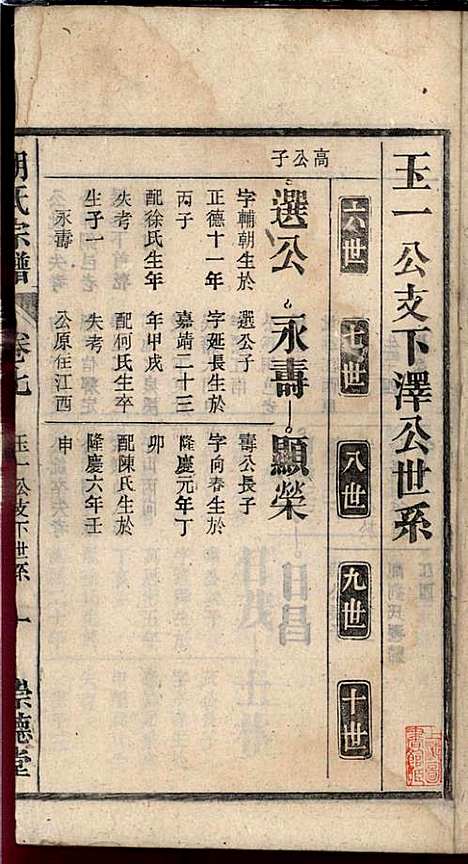 玉一公支下澤公世系
六世 七世 八世 九世 十世
高公子
選公 永壽 顯榮 日昌
字輔朝生於
正德十一年
丙子
配徐氏生年
失考
生子一
永壽
選公子
字延長生於
嘉靖二十三
年甲戌
配何氏生卒
失考
公原住江西
壽公長子
字向春生於
隆慶元年丁
卯
配陳氏生於
隆慶六年壬
申
胡氏宗譜
卷七
玉一公支下世系
一
崇德堂